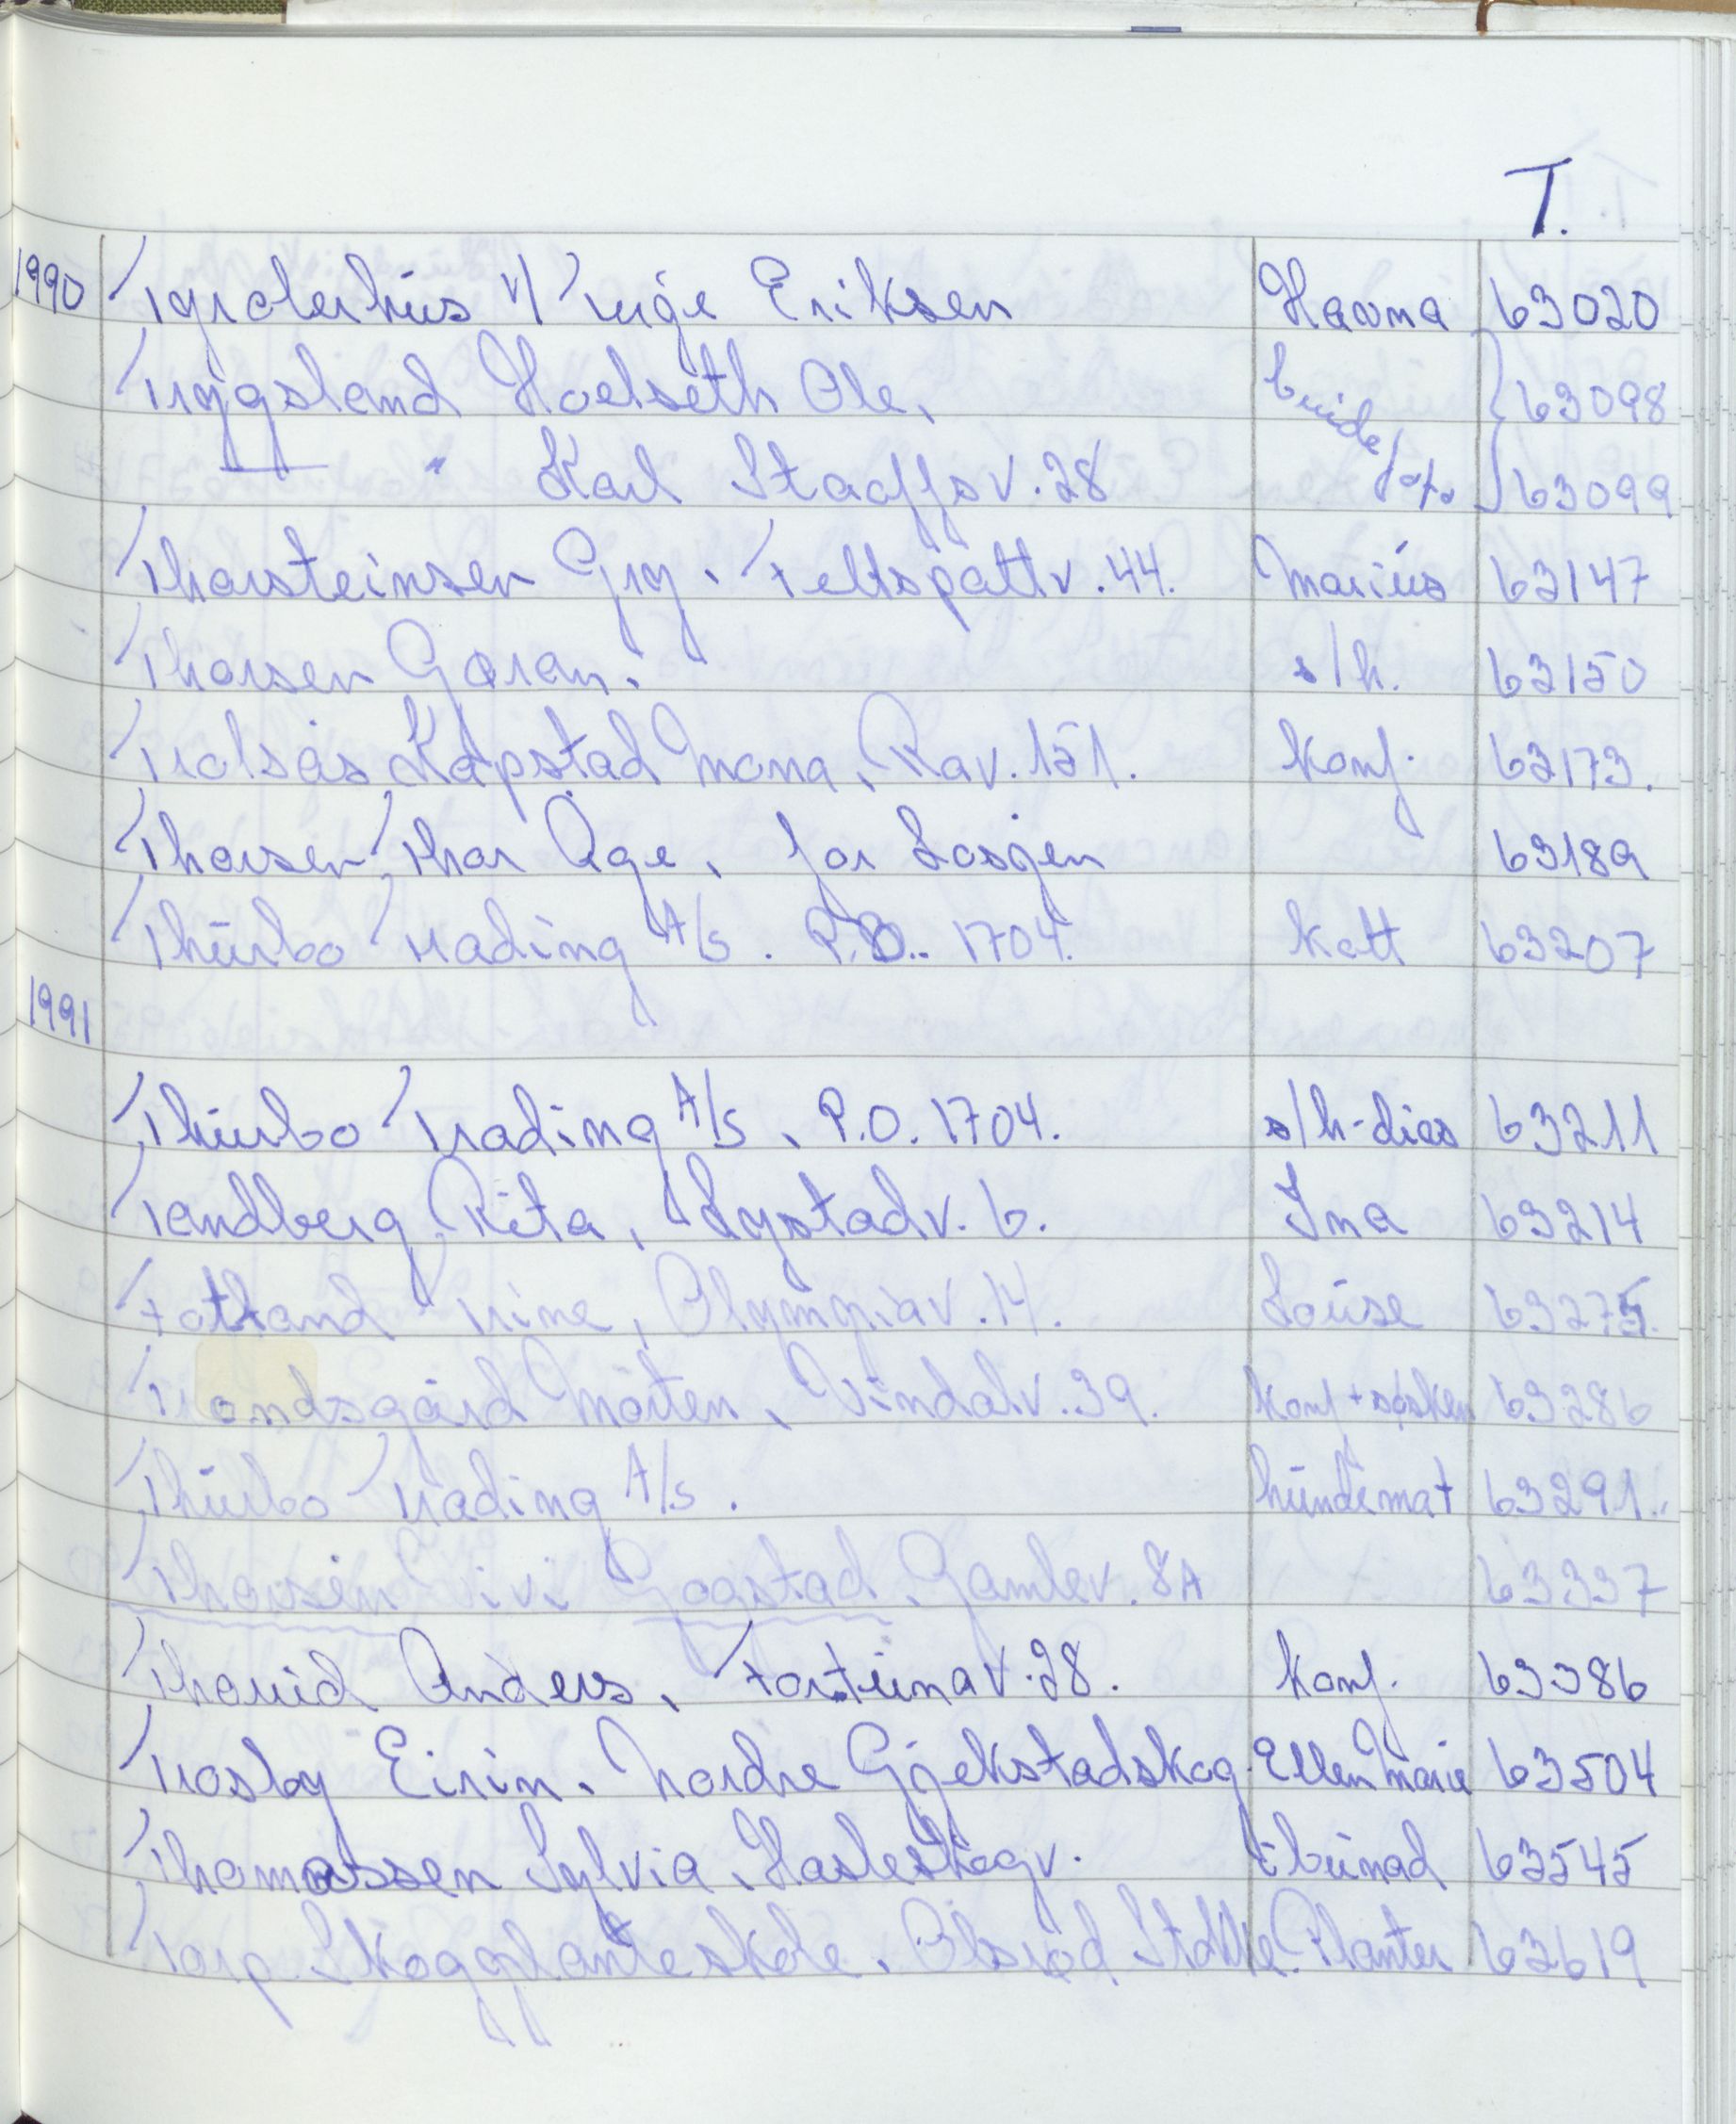 T.
1990 Tyrclerhus v/ Trige Eriksen Hanna 63020
Tryggsland Hoelseth Ole, brude 63098
— " — Karl Staaffsv. 28 foto 63099
Thorsteinsen Gry. Feltspattv. 44. Marius 63147
Thorsen Gøran. s/h. 63150
Trolsås Kopstad Mona, Rav. 151. Konf. 63173.
Thorsen Thor Åge, for Losjen 63189
Thurbo Trading A/s. P.O. 1704. Katt 63207
1991
Thurbo Trading A/s, P.O. 1704. s/h-dias 63211
Tandberg Rita, Lystadv. 6. Ina 63214
Totland Trine, Olympiav. 14. Louise 63275.
Trondsgård Morten, Vindalv. 39. Konf + søsken 63286
Thurbo Trading A/s. hundemat 63291.
Thorsen Vivi Gogstad, Gamlev. 8A 63337
Thorud Anders, Fortunav. 28. Konf. 63386
Trosby Eirin. Nordre Gjekstadskog. Ellen Marie 63504
Thomassen Sylvia, Hasleskogv. i bunad 63545
Torp Skogplanteskole. Olsrød, Stokke. Planter 63619